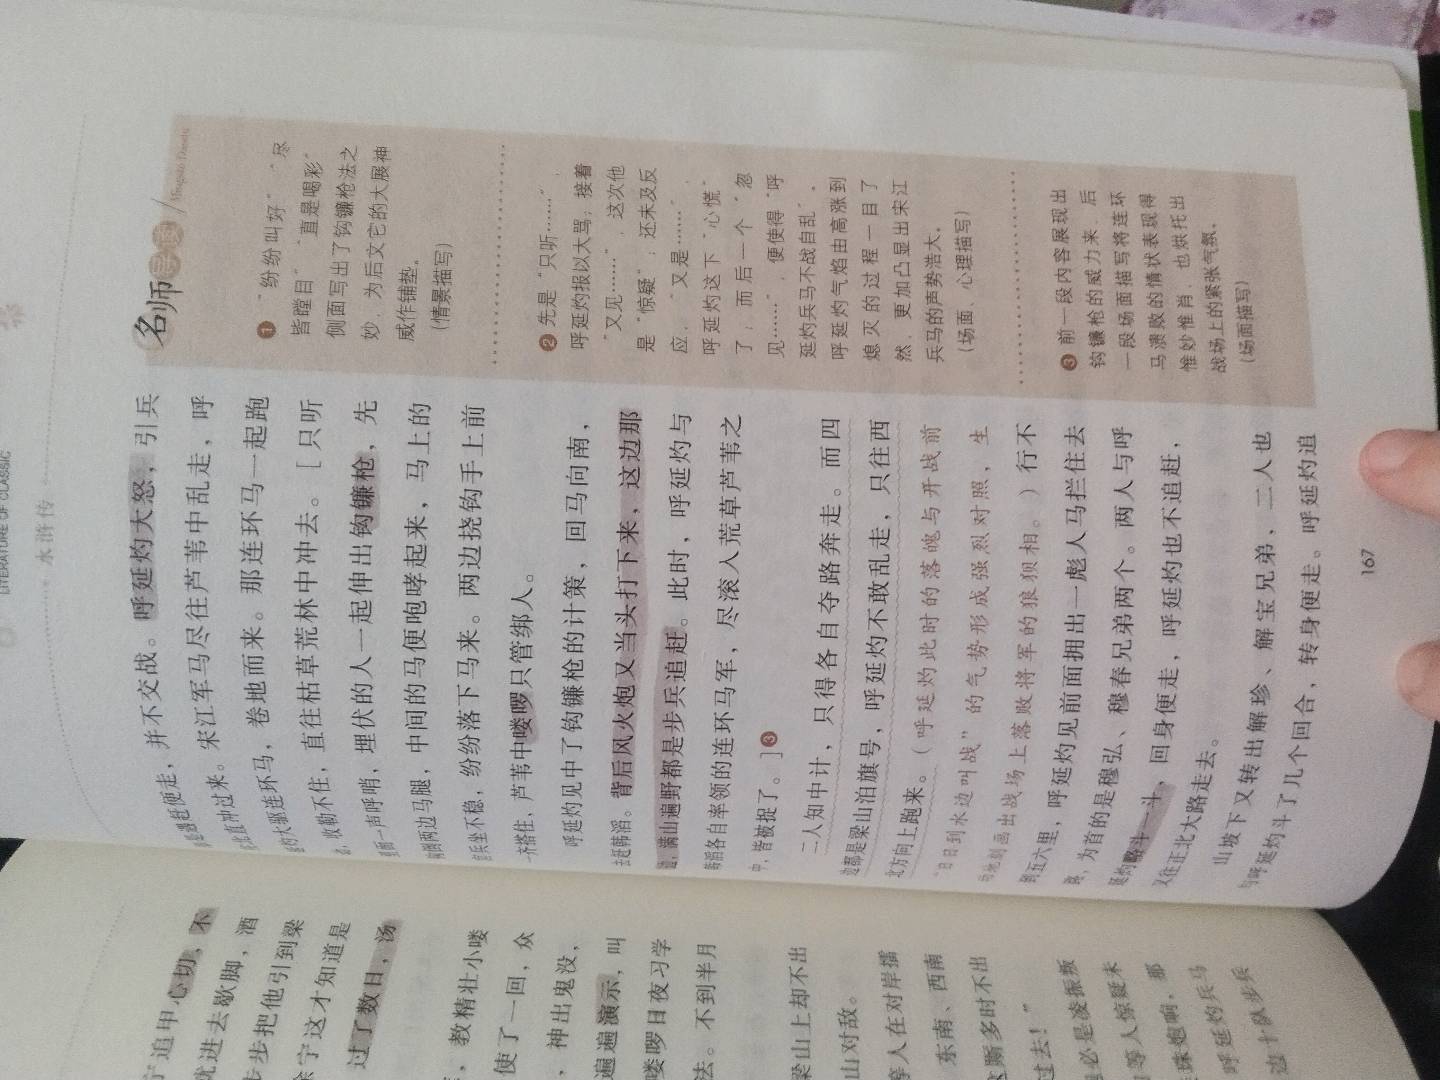 LITERATURE OF CLASSIC
水浒传
呼延灼大怒，引兵
便走，并不交战。
直冲过来。宋江军马尽往芦苇中乱走，呼
大驱连环马，卷地而来。那连环马一起跑
收勒不住，直往枯草荒林中冲去。[只听
一声呼哨，埋伏的人一起伸出钩镰枪，先
两边马腿，中间的马便咆哮起来，马上的
坐不稳，纷纷落下马来。两边挠钩手上前
搭住，芦苇中喽啰只管绑人。
呼延灼见中了钩镰枪的计策，回马向南，
去赶韩滔。背后风火炮又当头打下来，这边那
边，满山遍野都是步兵追赶。此时，呼延灼与
韩滔各自率领的连环马军，尽滚入荒草芦苇之
中，皆被捉了。]❸
二人知中计，只得各自夺路奔走。而四
边都是梁山泊旗号，呼延灼不敢乱走，只往西
北方向上跑来。（呼延灼此时的落魄与开战前
“日日到水边叫战”的气势形成强烈对照，生
动地刻画出战场上落败将军的狼狈相。）行不
到五六里，呼延灼见前面拥出一彪人马拦住去
路，为首的是穆弘、穆春兄弟两个。两人与呼
延灼略斗一斗，回身便走，呼延灼也不追赶，
又往正北大路走去。
山坡下又转出解珍、解宝兄弟，二人也
与呼延灼斗了几个回合，转身便走。呼延灼追
名师导读
❶ “纷纷叫好”、“尽
皆瞠目”、“直是喝彩”
侧面写出了钩镰枪法之
妙，为后文它的大展神
威作铺垫。
（情景描写）
❷ 先是“只听……”，
呼延灼报以大骂；接着
“又见……”，这次他
是“惊疑”；还未及反
应，“又是……”，
呼延灼这下“心慌”
了；而后一个“忽
见……”，便使得“呼
延灼兵马不战自乱”。
呼延灼气焰由高涨到
熄灭的过程一目了
然，更加凸显出宋江
兵马的声势浩大。
（场面、心理描写）
❸ 前一段内容展现出
钩镰枪的威力来，后
一段场面描写将连环
马溃败的情状表现得
惟妙惟肖，也烘托出
战场上的紧张气氛。
（场面描写）
167
宁追甲心切，不
就进去歇脚，酒
步步把他引到梁
徐宁这才知道是
过了数日，汤
，教精壮小喽
使了一回，众
、神出鬼没，
遍遍演示，叫
喽啰日夜习学
法。不到半月
梁山上却不出
山对敌。
摩人在对岸擂
东南、西南
厮多时不出
过去！”
必是凌振叛
等人惊疑未
珠炮响，那
呼延灼兵马
边十队步兵